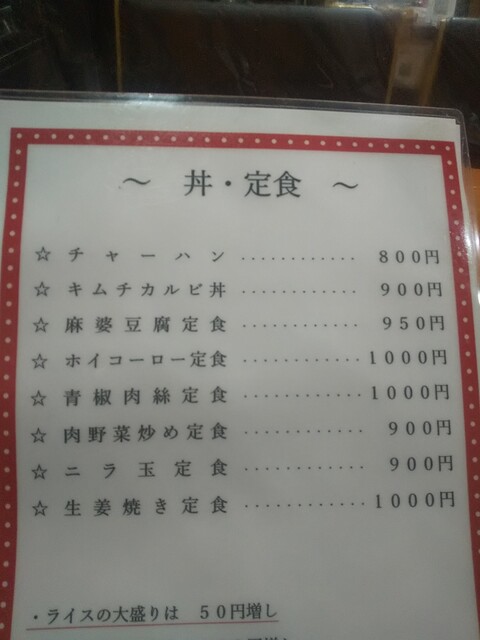 ～ 丼・定食 ～
☆ チャーハン ............ 800円
☆ キムチカルビ丼 ............ 900円
☆ 麻婆豆腐定食 ............ 950円
☆ ホイコーロー定食 ............ 1000円
☆ 青椒肉絲定食 ............ 1000円
☆ 肉野菜炒め定食 ............ 900円
☆ ニラ玉定食 ............ 900円
☆ 生姜焼き定食 ............ 1000円
・ライスの大盛りは 50円増し